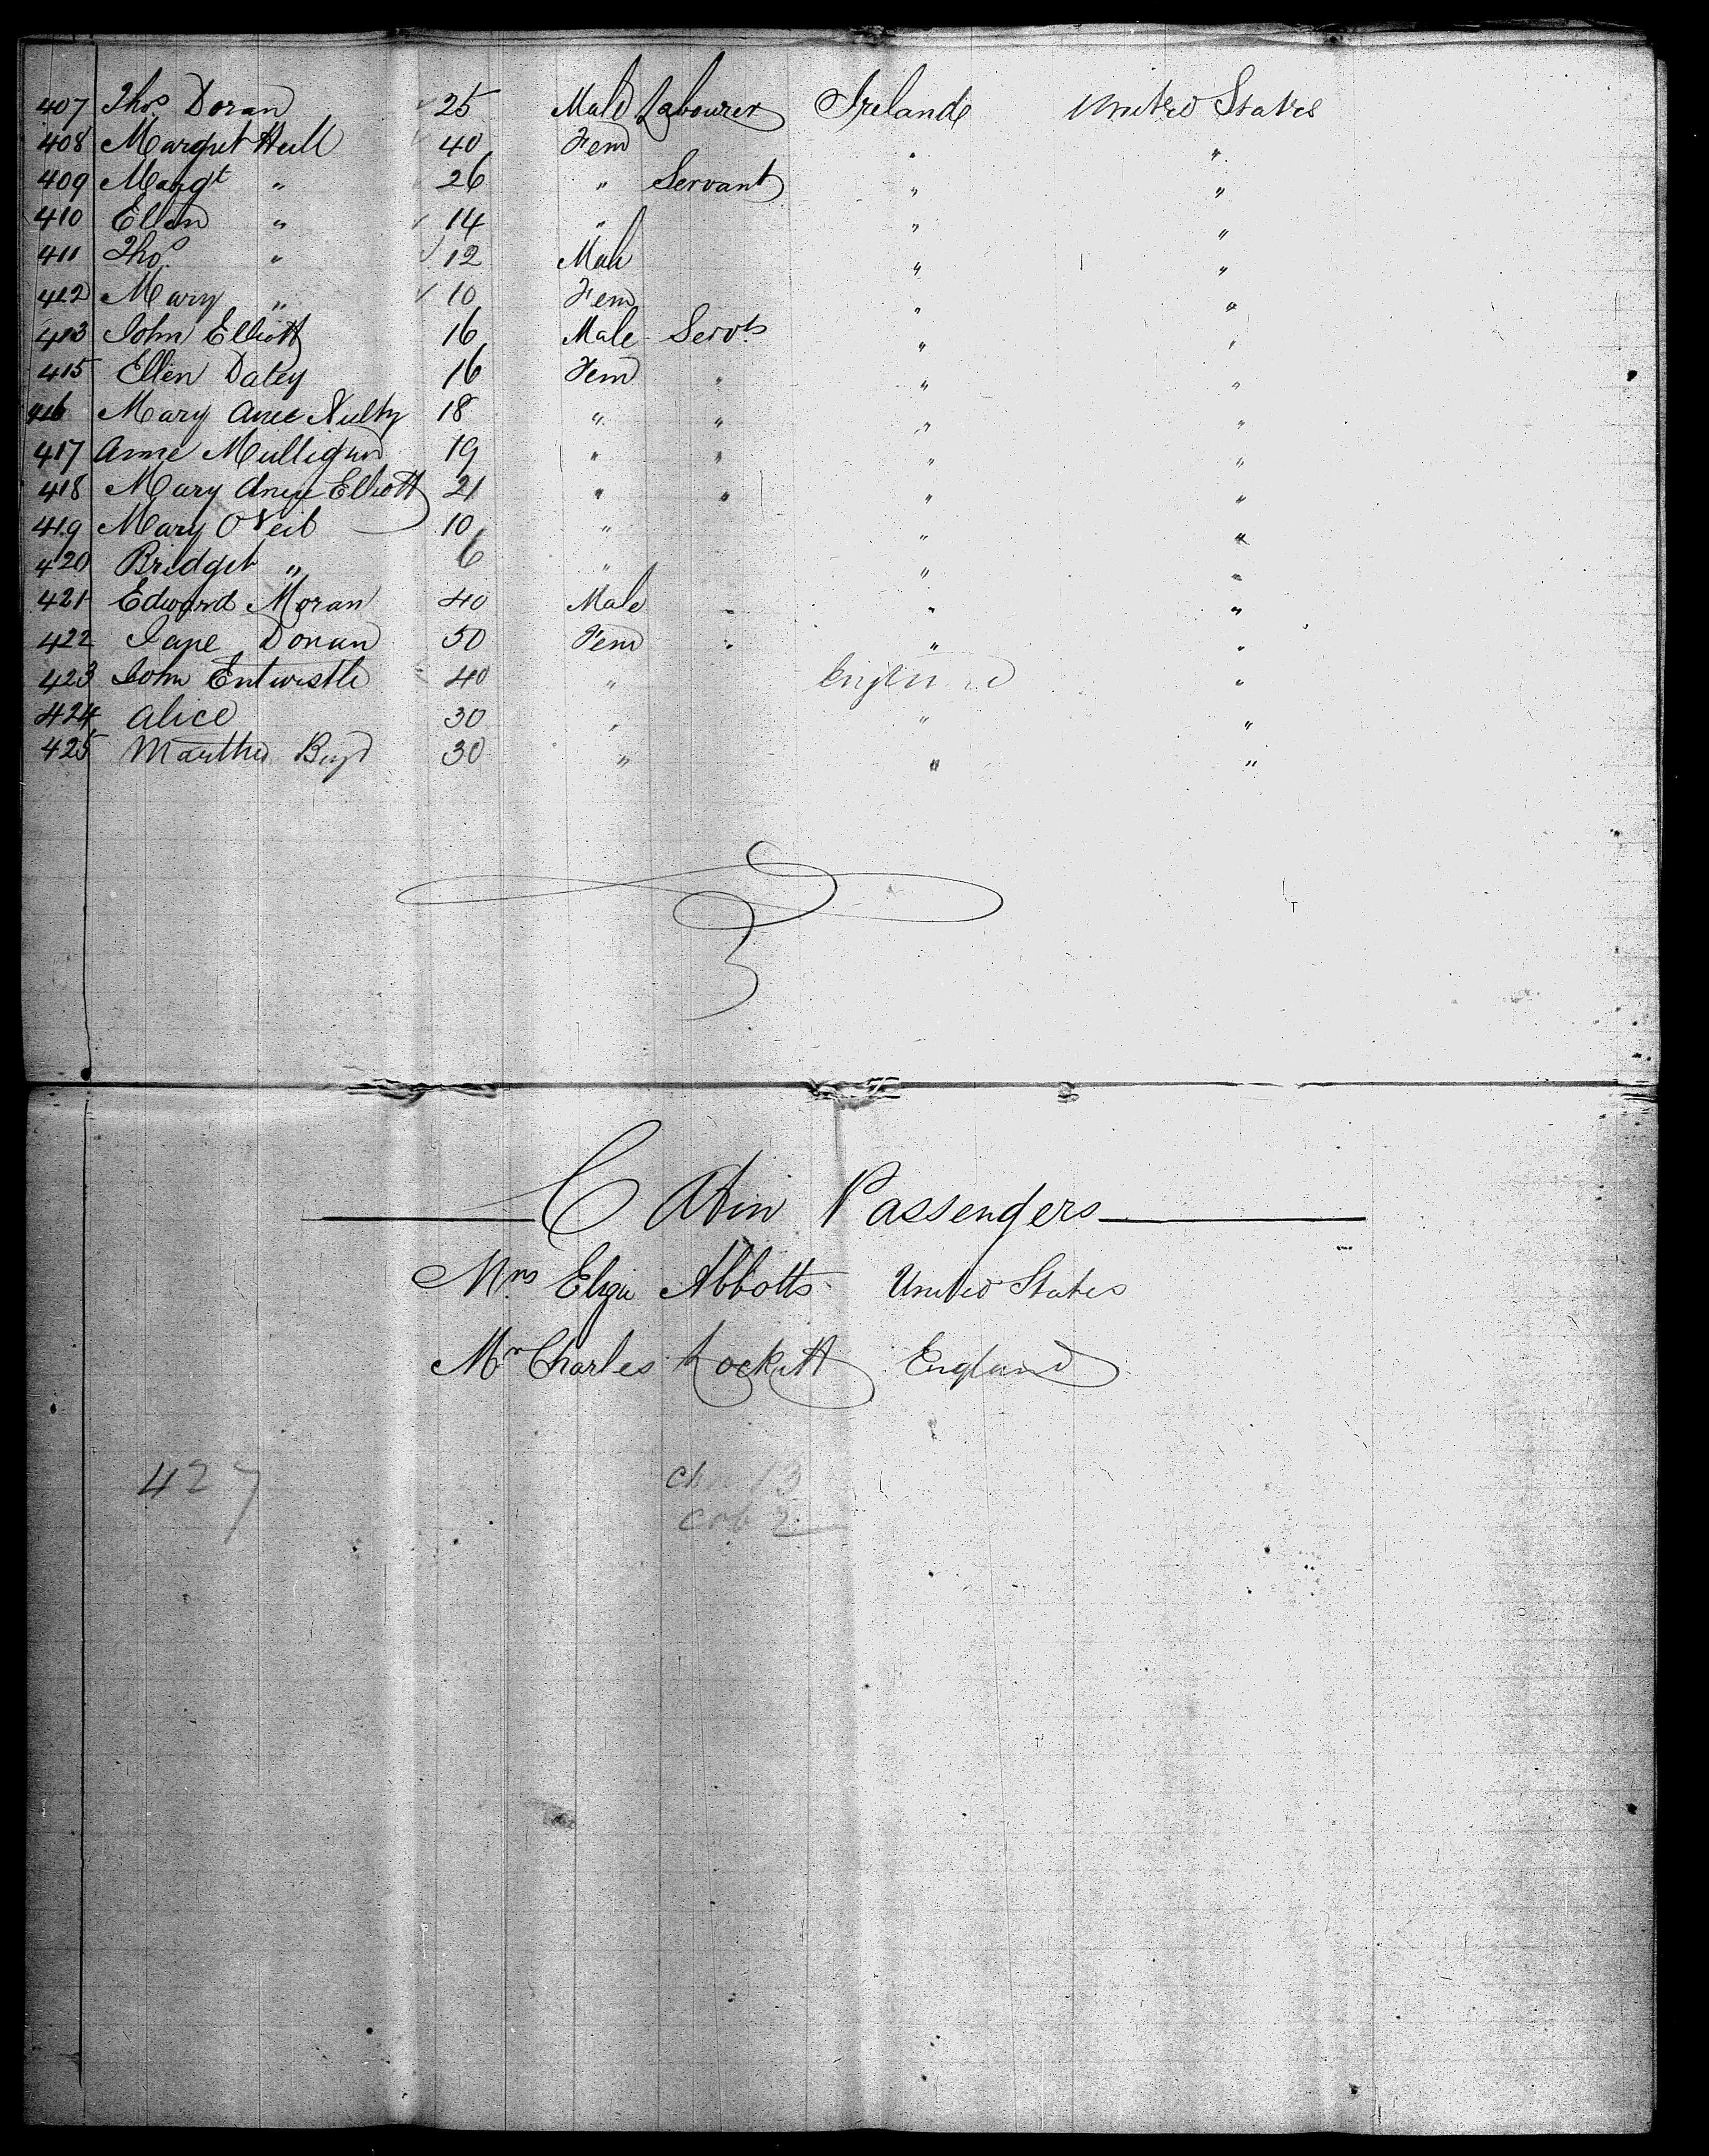 407 Thos Doran 25 Male Labourer Ireland United States
408 Margret Hull 40 Fem " "
409 Margt " 26 " Servant " "
410 Ellen " 14 " " "
411 Thos " 12 Male " "
412 Mary " 10 Fem " "
413 John Elliott 16 Male Servts " "
415 Ellen Daley 16 Fem " " "
416 Mary Anne Nulty 18 " " " "
417 Anne Mulligan 19 " " " "
418 Mary Anne Elliott 21 " " " "
419 Mary O Neil 10 " " "
420 Bridget " 6 " " "
421 Edward Moran 40 Male " " "
422 Jane Doran 50 Fem " " "
423 John Entwistle 40 " England "
424 Alice 30 " " "
425 Martha Boyd 30 " " "
Cabin Passengers
Mrs Eliza Abbotts United States
Mr Charles Lockett England
427
13
cab 2